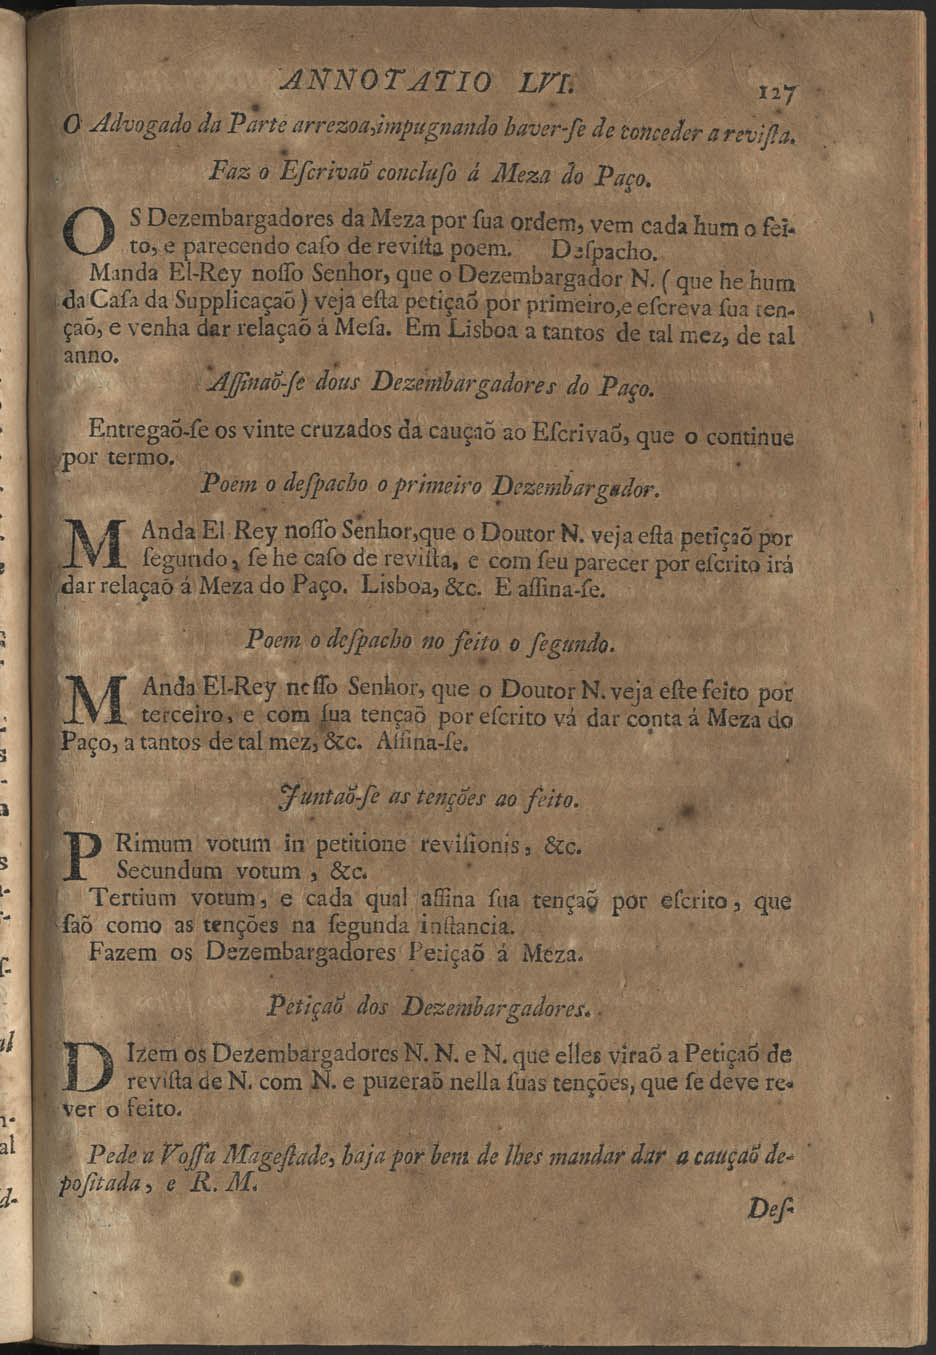 ANNOTATIO LVI. 127
O Advogado da Parte arrezoa,impugnando haver-ſe de conceder a reviſta.
Faz o Eſcrivaõ concluſo á Meza do Paço.
OS Dezembargadores da Meza por ſua ordem, vem cada hum o fei-
to, e parecendo caſo de reviſta poem. Deſpacho.
Manda El-Rey noſſo Senhor, que o Dezembargador N. ( que he hum
da Caſa da Supplicaçaõ ) veja eſta petiçaõ por primeiro,e eſcreva ſua ten-
çaõ, e venha dar relaçaõ á Meſa. Em Lisboa a tantos de tal mez, de tal
anno.
Aſſinaõ-ſe dous Dezembargadores do Paço.
Entregaõ-ſe os vinte cruzados da cauçaõ ao Eſcrivaõ, que o continue
por termo.
Poem o deſpacho o primeiro Dezembargador.
MAnda El Rey noſſo Senhor,que o Doutor N. veja eſta petiçaõ por
ſegundo, ſe he caſo de reviſta, e com ſeu parecer por eſcrito irá
dar relaçaõ á Meza do Paço. Lisboa, &c. E aſſina-ſe.
Poem o deſpacho no feito o ſegundo.
MAnda El-Rey neſſo Senhor, que o Doutor N. veja eſte feito por
terceiro, e com ſua tençaõ por eſcrito vá dar conta á Meza do
Paço, a tantos de tal mez, &c. Aſſina-ſe.
Juntaõ-ſe as tenções ao feito.
PRimum votum in petitione reviſionis, &c.
Secundum votum , &c.
Tertium votum, e cada qual aſſina ſua tençaõ por eſcrito, que
ſaõ como as tenções na ſegunda inſtancia.
Fazem os Dezembargadores Petiçaõ á Meza.
Petiçaõ dos Dezembargadores.
DIzem os Dezembargadores N. N. e N. que elles viraõ a Petiçaõ de
reviſta de N. com N. e puzeraõ nella ſuas tenções, que ſe deve re-
ver o feito.
Pede a Voſſa Mageſtade, haja por bem de lhes mandar dar a cauçaõ de-
poſitada, e R. M.
Deſ-